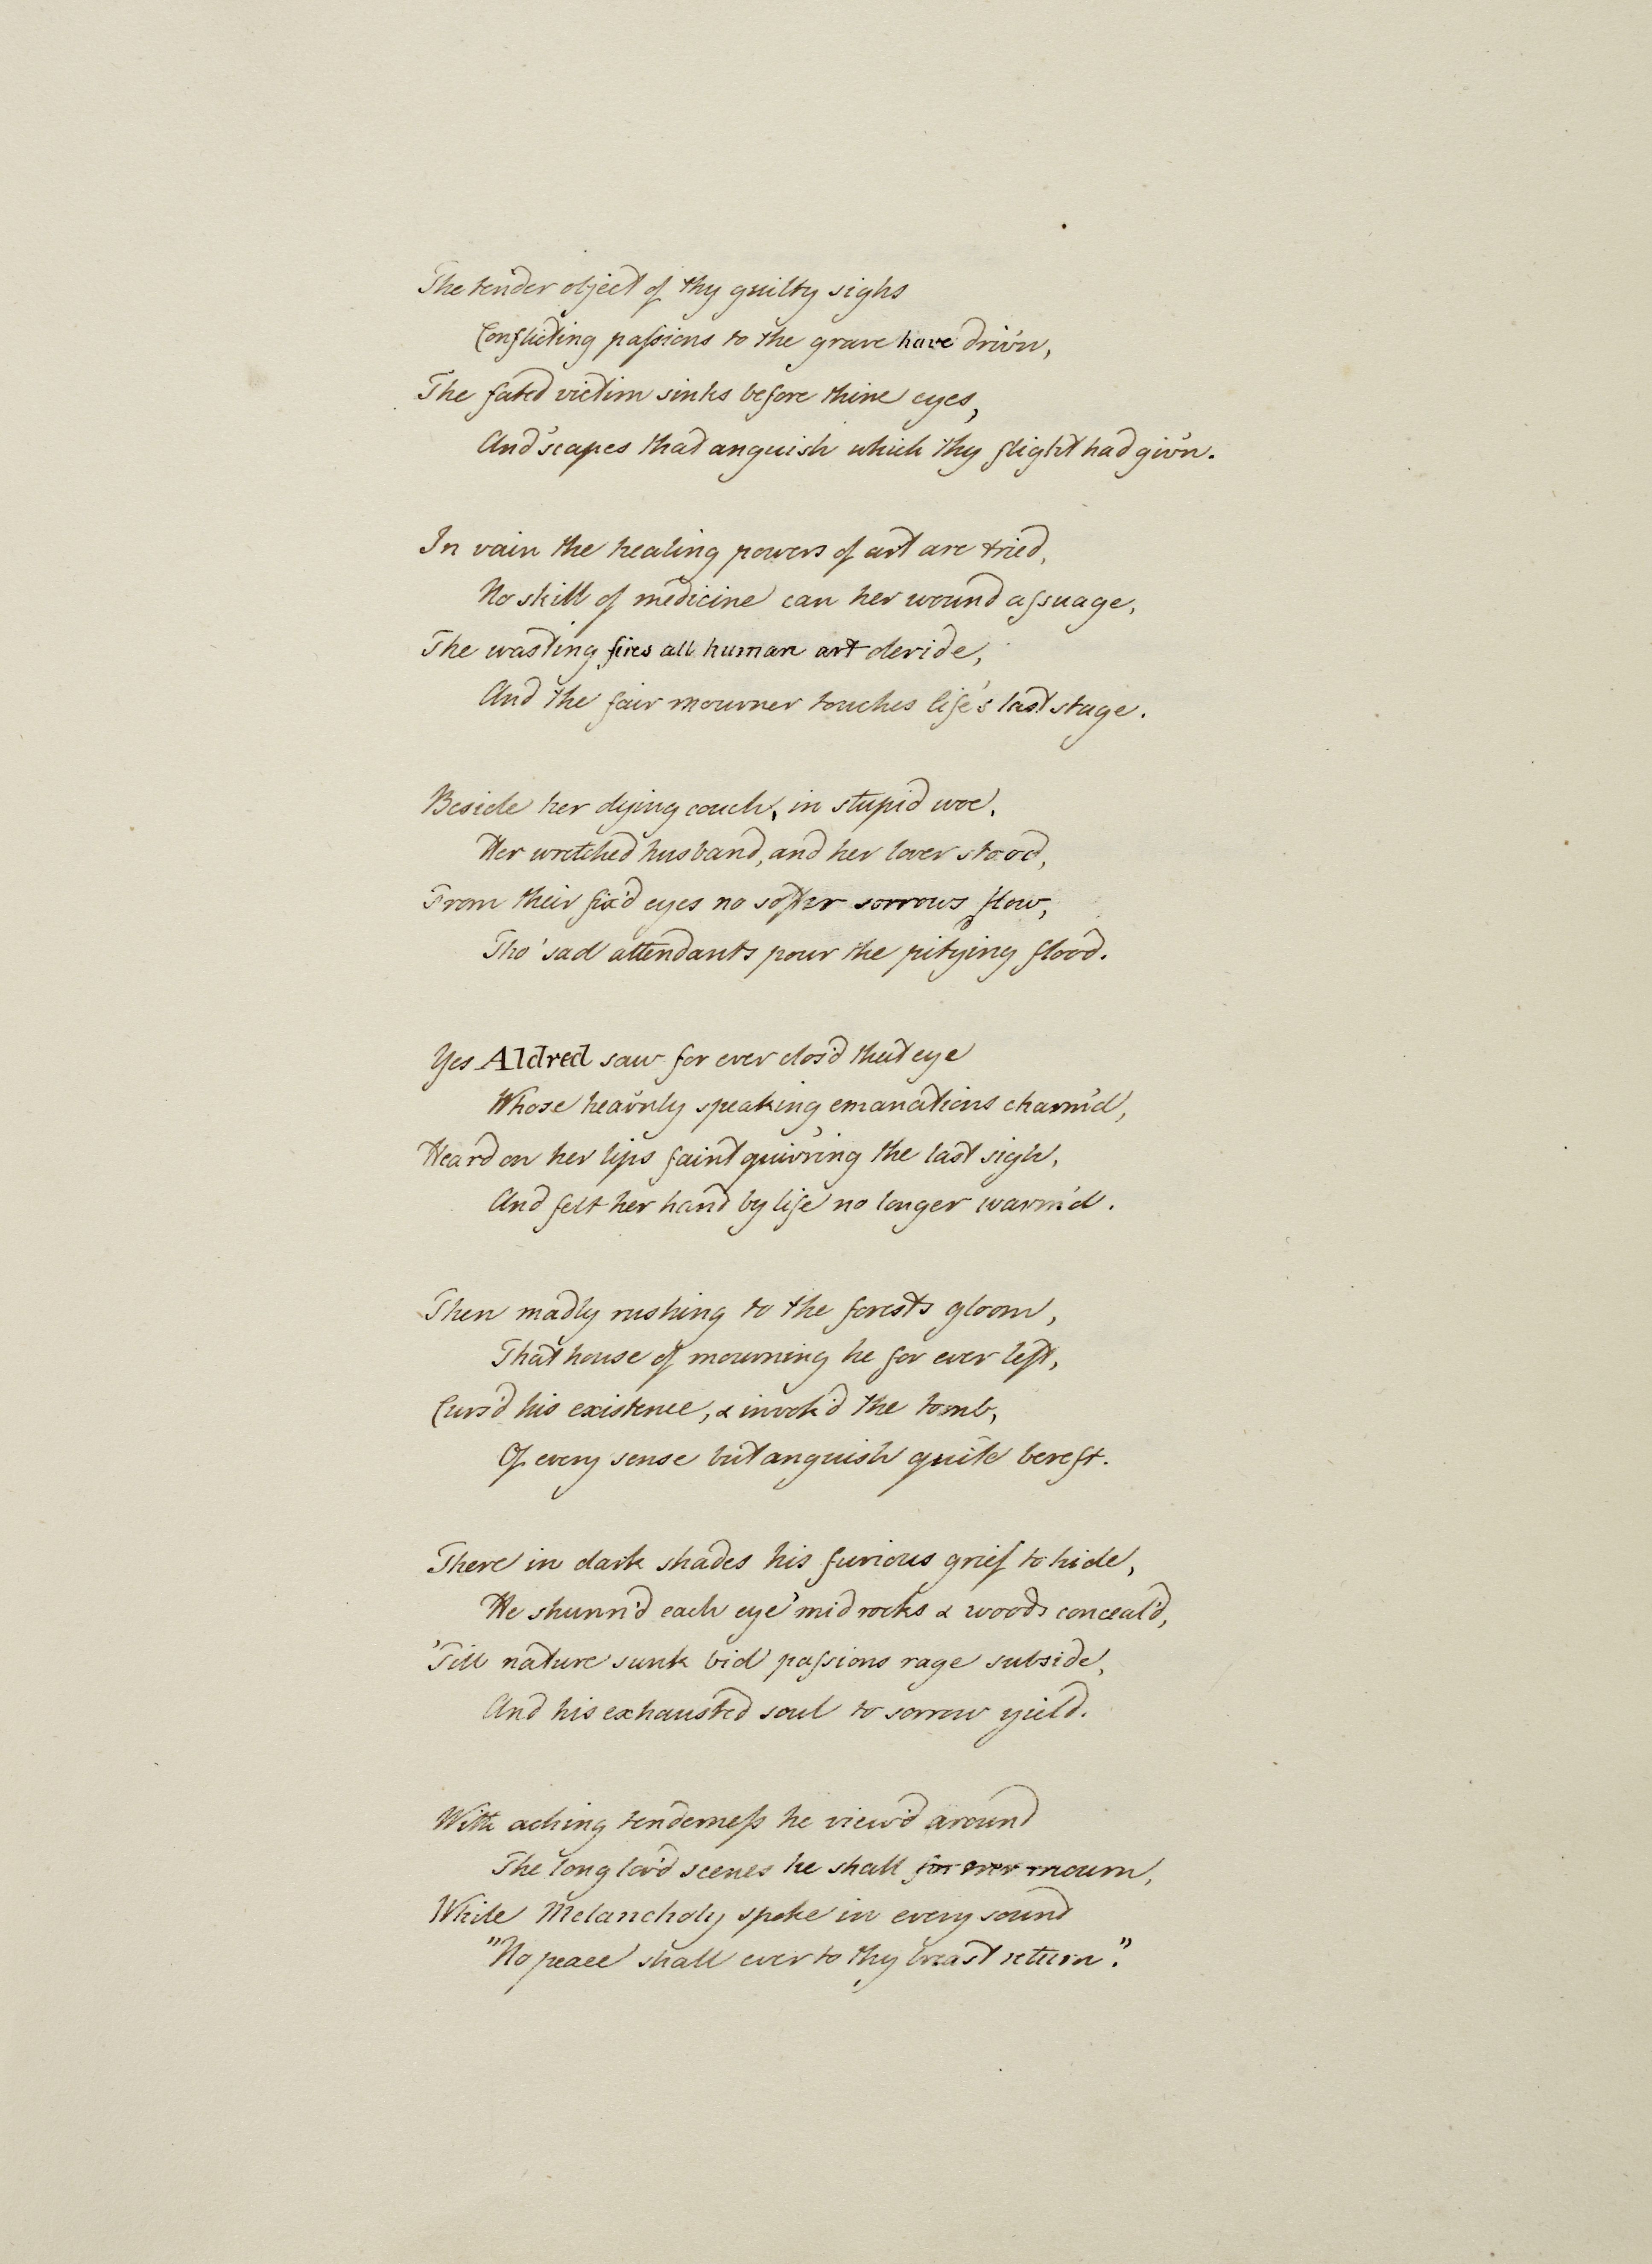 The tender object of thy guilty sighs
Conflicting paſsions to the grave have driv'n,
The fated victim sinks before thine eyes,
And 'scapes that anguish which thy flight had giv'n.
In vain the healing powers of art are tried,
No skill of medicine can her wound aſsuage,
The wasting fires all human art deride,
And the fair mourner touches life's last stage.
Beside her dying couch, in stupid woe,
Her wretched husband, and her lover stood,
From their fix'd eyes no softer sorrows flow,
Tho' sad attendants pour the pitying flood.
Yes Aldred saw for ever clos'd that eye
Whose heav'nly speaking emanations charm'd,
Heard on her lips faint quiv'ring the last sigh,
And felt her hand by life no longer warm'd.
Then madly rushing to the forests gloom,
That house of mourning he for ever left,
Curs'd his existence, & invok'd the tomb,
Of every sense but anguish quite bereft.
There in dark shades his furious grief to hide,
He shunn'd each eye 'mid rocks & woods conceal'd,
'Till nature sunk bid paſsions rage subside,
And his exhausted soul to sorrow yield.
With aching tenderneſs he view'd around
The long lov'd scenes he shall for ever mourn,
While Melancholy spoke in every sound
"No peace shall ever to thy breast return."